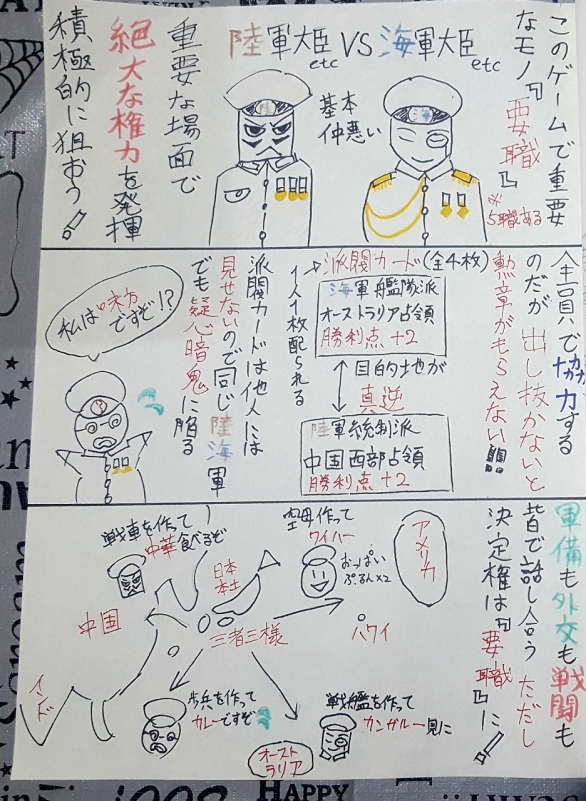 このゲームで重要
なモノ『要職』
※
5職ある
陸軍大臣etc VS 海軍大臣etc
基本
仲悪い
陸
海
重要な場面で
絶大な権力を発揮
積極的に狙おう!
全員で協力する
のだが出し抜かないと
勲章がもらえない!!
派閥カード(全4枚)
1人1枚配られる
海軍艦隊派
オーストラリア占領
勝利点+2
目的地が
真逆
陸軍統制派
中国西部占領
勝利点+2
派閥カードは他人には
見せないので同じ陸海軍
でも疑心暗鬼に陥る
私は味方
ですぞ!?
軍備も外交も戦闘も
皆で話し合う ただし
決定権は『要職』に!
アメリカ
空母作って
ワイハー
おっぱい
ぷるん×2
ハワイ
戦車を作って
中華食べるぞ
日本
本土
中国
三者三様
インド
歩兵を作って
カレーですぞ
戦艦を作って
カンガルー見に
オースト
ラリア
HAPPY